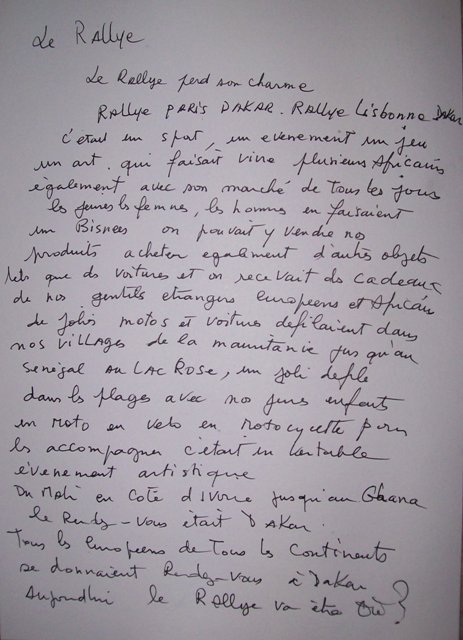 Le Rallye
Le Rallye perd son charme
Rallye PARIS DAKAR. Rallye Lisbonne DAKAR
c'etait un sport, un evenement un jeu
un art. qui faisait vivre plusieurs Africains
également avec son marché de Tous les jours
les jeunes les femmes, les hommes en faisaient
un Bisnees on pouvait y vendre nos
produits acheter egalement d'autres objets
tels que des voitures et on recevait des cadeaux
de nos gentils etrangers Européens et Africains
de jolis motos et voitures defilaient dans
nos villages de la mauritanie jusqu'au
Senegal AU LAC ROSE, un joli defilé
dans les plages avec nos jeunes enfants
en Moto en velo en Motocyclette pour
les accompagner c'était un veritable
evènement artistique
Du Mali en Cote d'Ivoire jusqu'au Ghana
le Rendez-vous était Dakar.
Tous les Européens de Tous les Continents
se donnaient Rendez-vous à Dakar
Aujourdhui le Rallye va être Où?